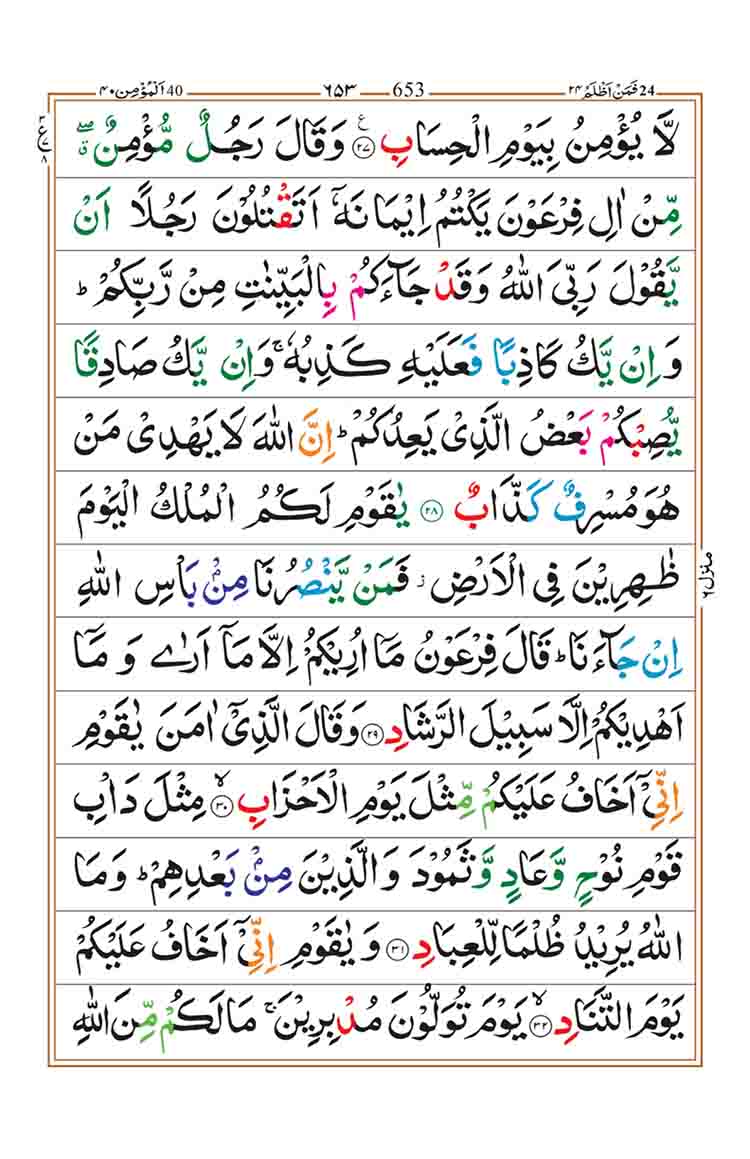 24 فَمَنْ اَظْلَمُ ۲۴ 653 ۶۵۳ 40 اَلْمُؤْمِن ۴۰
لَّا يُؤْمِنُ بِيَوْمِ الْحِسَابِ ﴿۲۷﴾ وَقَالَ رَجُلٌ مُّؤْمِنٌ ۖۗ
مِّنْ اٰلِ فِرْعَوْنَ يَكْتُمُ اِيْمَانَهٗۤ اَتَقْتُلُوْنَ رَجُلًا اَنْ
يَّقُوْلَ رَبِّيَ اللّٰهُ وَقَدْ جَآءَكُمْ بِالْبَيِّنٰتِ مِنْ رَّبِّكُمْ ؕ
وَاِنْ يَّكُ كَاذِبًا فَعَلَيْهِ كَذِبُهٗ ۚ وَاِنْ يَّكُ صَادِقًا
يُّصِبْكُمْ بَعْضُ الَّذِيْ يَعِدُكُمْ ؕ اِنَّ اللّٰهَ لَا يَهْدِيْ مَنْ
هُوَ مُسْرِفٌ كَذَّابٌ ﴿۲۸﴾ يٰقَوْمِ لَكُمُ الْمُلْكُ الْيَوْمَ
ظٰهِرِيْنَ فِي الْاَرْضِ ؗ فَمَنْ يَّنْصُرُنَا مِنْۢ بَاْسِ اللّٰهِ
اِنْ جَآءَنَا ؕ قَالَ فِرْعَوْنُ مَاۤ اُرِيْكُمْ اِلَّا مَاۤ اَرٰى وَمَاۤ
اَهْدِيْكُمْ اِلَّا سَبِيْلَ الرَّشَادِ ﴿۲۹﴾ وَقَالَ الَّذِيْۤ اٰمَنَ يٰقَوْمِ
اِنِّيْۤ اَخَافُ عَلَيْكُمْ مِّثْلَ يَوْمِ الْاَحْزَابِ ۙ﴿۳۰﴾ مِثْلَ دَاْبِ
قَوْمِ نُوْحٍ وَّعَادٍ وَّثَمُوْدَ وَالَّذِيْنَ مِنْۢ بَعْدِهِمْ ؕ وَمَا
اللّٰهُ يُرِيْدُ ظُلْمًا لِّلْعِبَادِ ﴿۳۱﴾ وَيٰقَوْمِ اِنِّيْۤ اَخَافُ عَلَيْكُمْ
يَوْمَ التَّنَادِ ۙ﴿۳۲﴾ يَوْمَ تُوَلُّوْنَ مُدْبِرِيْنَ ۚ مَا لَكُمْ مِّنَ اللّٰهِ
منزل ۶